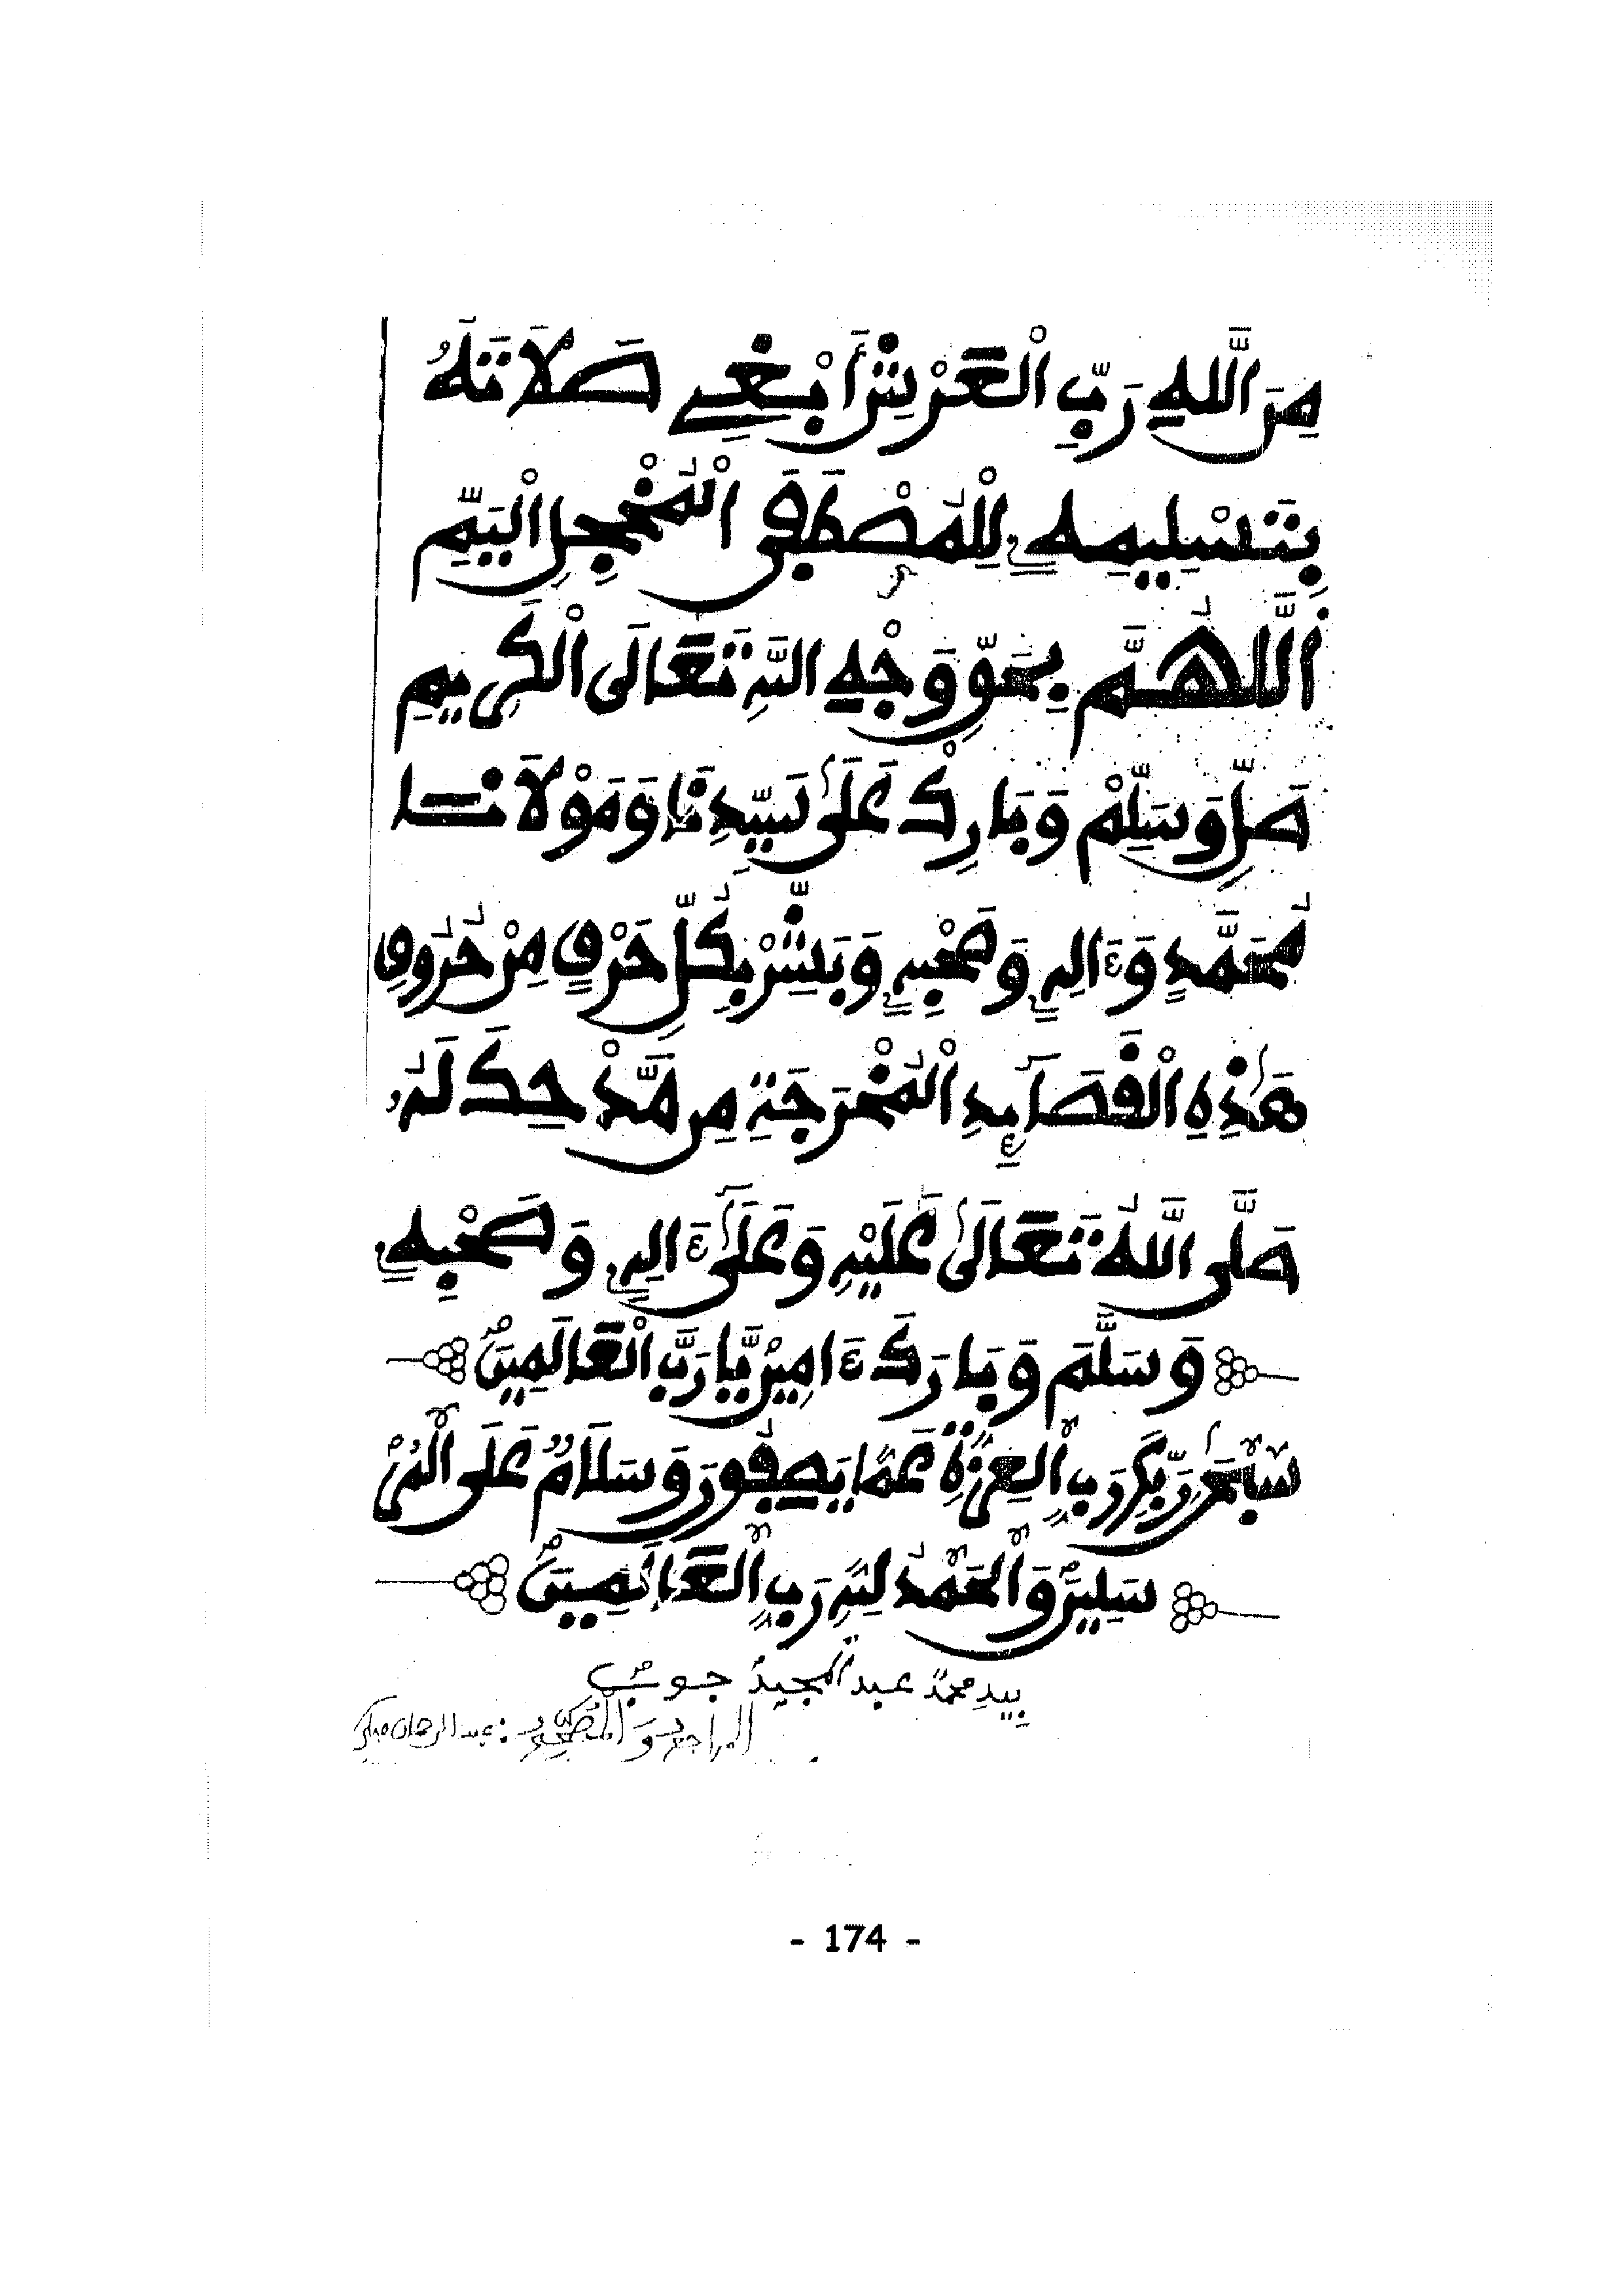 مِنَ اللَّهِ رَبِّ الْعَرْشِ أَبْغِي صَلَاتَهُ
بِتَسْلِيمِهِ لِلْمُصْطَفَى الْمُخْجِلِ الْيَمِّ
اَللَّهُمَّ بِحَقِّ وَجْهِ اللَّهِ تَعَالَى الْكَرِيمِ
صَلِّ وَسَلِّمْ وَبَارِكْ عَلَى سَيِّدِنَا وَمَوْلَانَا
مُحَمَّدٍ وَءَالِهِ وَصَحْبِهِ وَبَشِّرْ بِكُلِّ حَرْفٍ مِنْ حُرُوفِ
هَٰذِهِ الْقَصَآئِدِ الْمُخْرَجَةِ مِمَّنْ حِكَلَهُ
صَلَّى اللَّهُ تَعَالَىٰ عَلَيْهِ وَعَلَىٰٓ ءَالِهِ وَصَحْبِهِ
وَسَلَّمَ وَبَارَكَ ءَامِينَ يَّا رَبَّ الْعَالَمِينَ
سُبْحَٰنَ رَبِّكَ رَبِّ الْعِزَّةِ عَمَّا يَصِفُونَ وَسَلَامٌ عَلَى الْمُرْ
سَلِينَ وَالْحَمْدُ لِلَّهِ رَبِّ الْعَالَمِينَ
بِيَدِ محمد عبد المجيد جوب
المراجع وَالْمُصَحِّح : عبد الرحمان
- 174 -